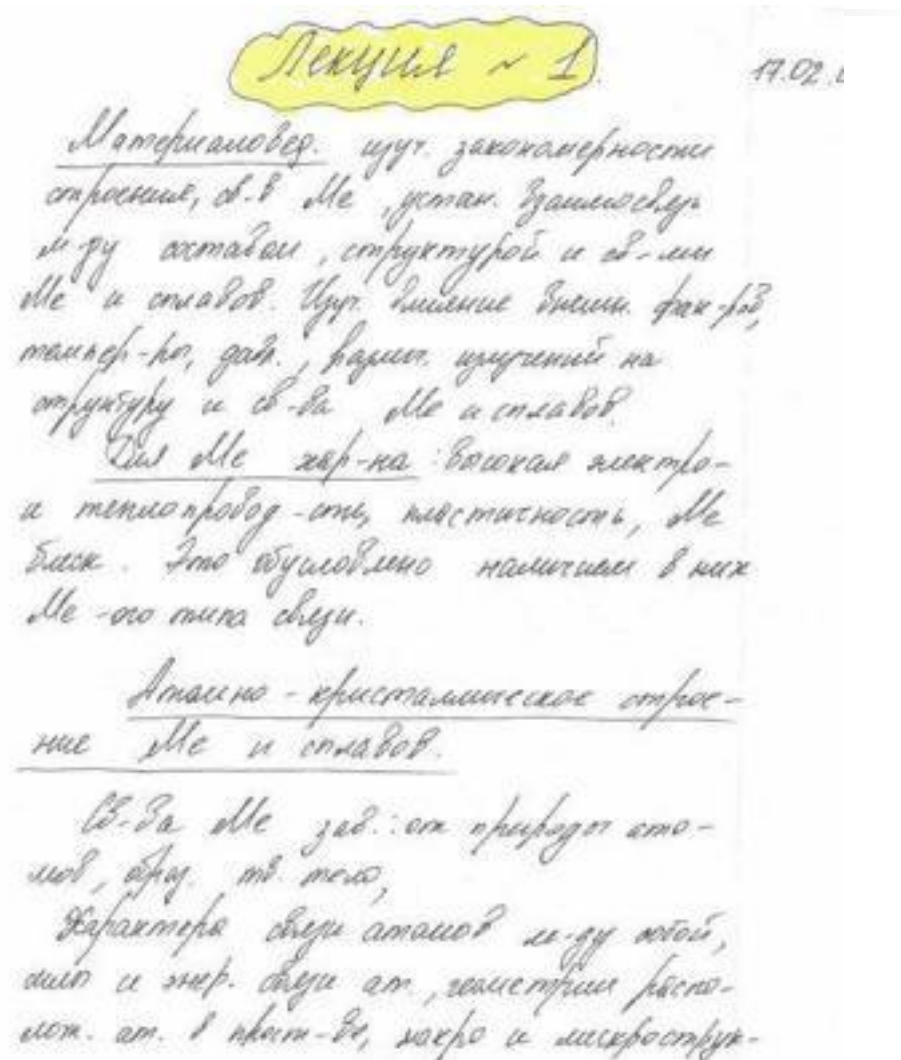 Лекция ~ 1.
17.02.
Материаловед. изуч. закономерности
строения, св-в Ме, устан. взаимосвязь
м-ду составом, структурой и св-ми
Ме и сплавов. Изуч. влияние внешн. фак-ров,
темпер-ры, давл., радиац. излучений на
структуру и св-ва Ме и сплавов.
Для Ме хар-на: высокая электро-
и теплопровод-сть, пластичность, Ме
блеск. Это обусловлено наличием в них
Ме-ого типа связи.
Атомно-кристаллическое строе-
ние Ме и сплавов.
Св-ва Ме зав.: от природы ато-
мов, образ. тв. тело,
Характера связи атомов м-ду собой,
силы и энер. связи ат., геометрии распо-
лож. ат. в прост-ве, макро и микрострук-